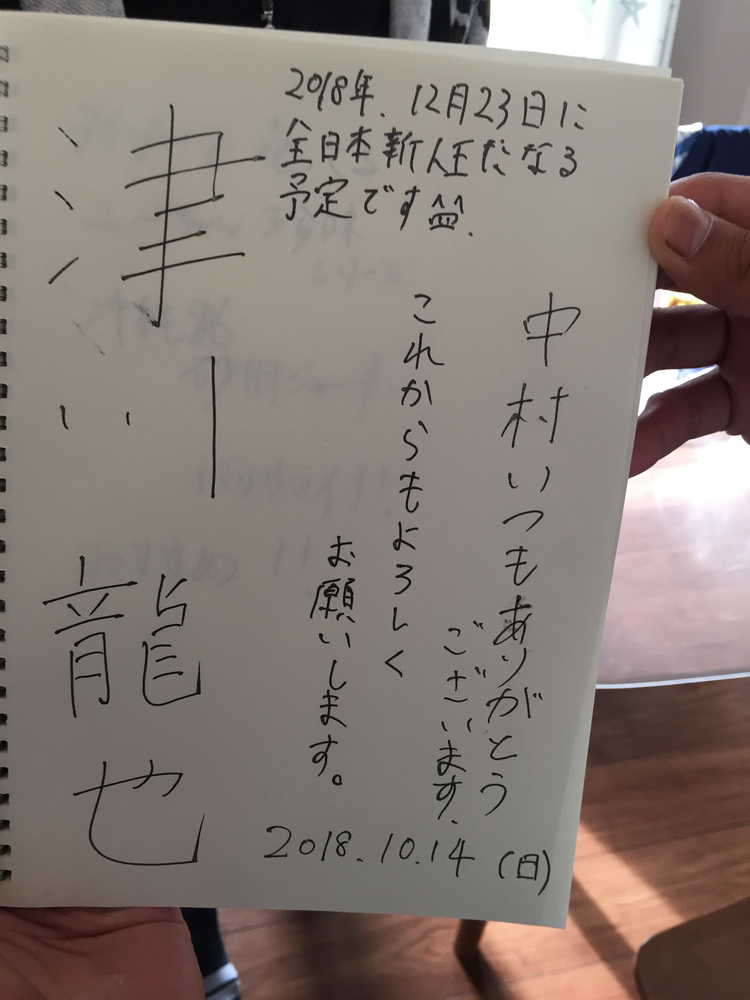 2018年.12月23日に
全日本新人王になる
予定です
中村いつもありがとう
ございます.
これからもよろしく
お願いします。
津川龍也
2018.10.14(日)